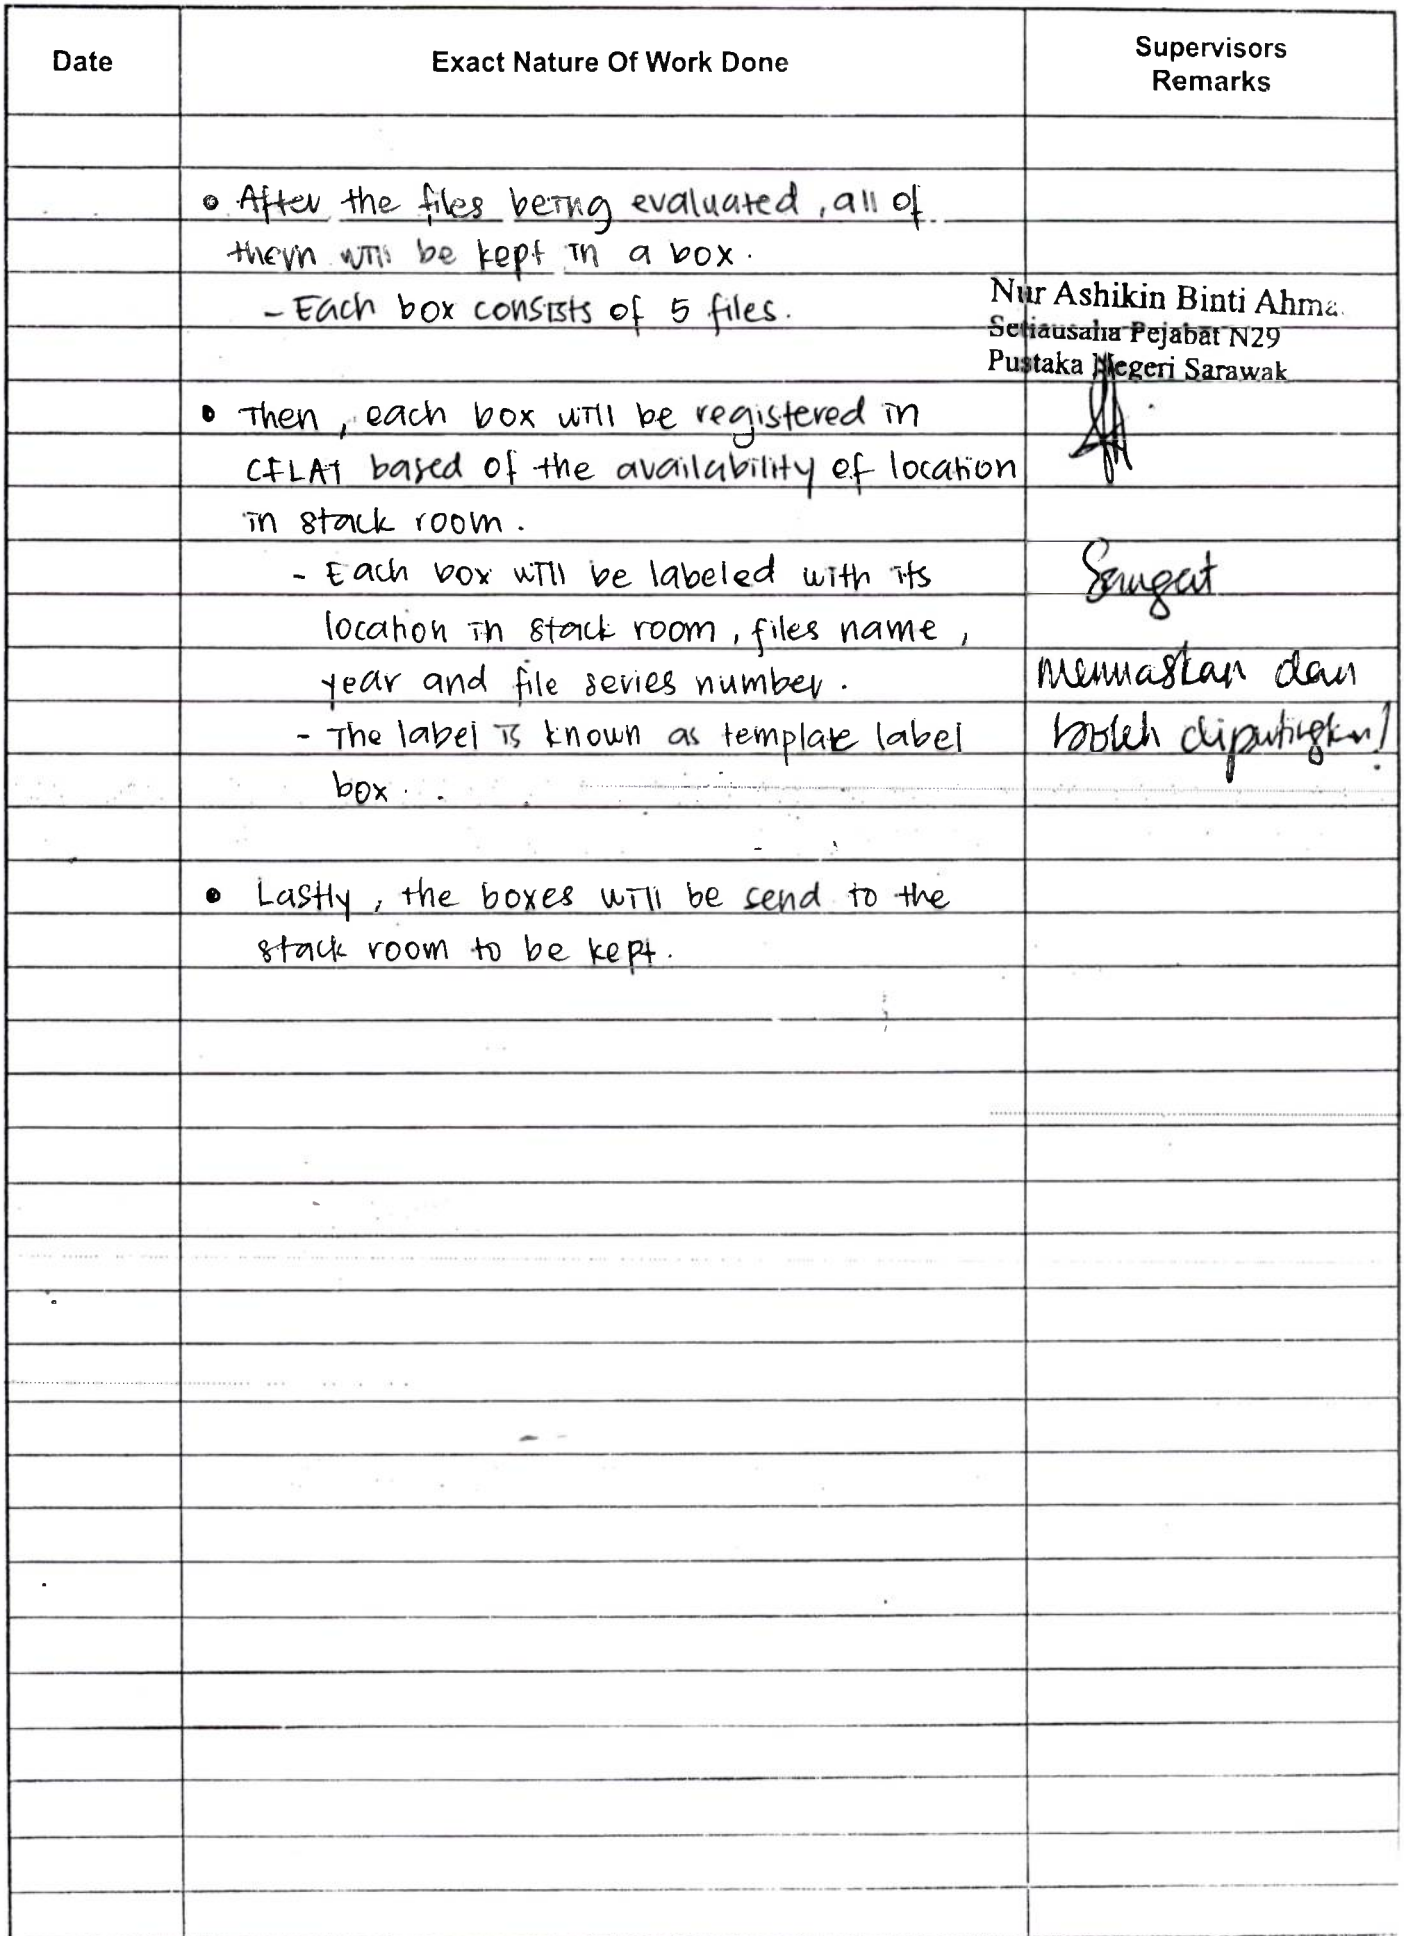 Date
Exact Nature Of Work Done
Supervisors
Remarks
• After the files being evaluated, all of
them will be kept in a box.
- Each box consists of 5 files.
• Then, each box will be registered in
CFLAT based of the availability of location
in stack room.
- Each box will be labeled with its
location in stack room, files name,
year and file series number.
- The label is known as template label
box.
• Lastly, the boxes will be send to the
stack room to be kept.
Nur Ashikin Binti Ahma
Setiausaha Pejabat N29
Pustaka Negeri Sarawak
Sangat
memuaskan dan
boleh